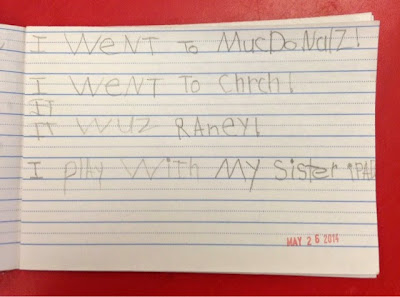 I WeNT To MucDoNalZ!
I WeNT To Chrch!
IT
IT wuz RAney!
I plAy With My Sister iPAD
MAY 26 2014